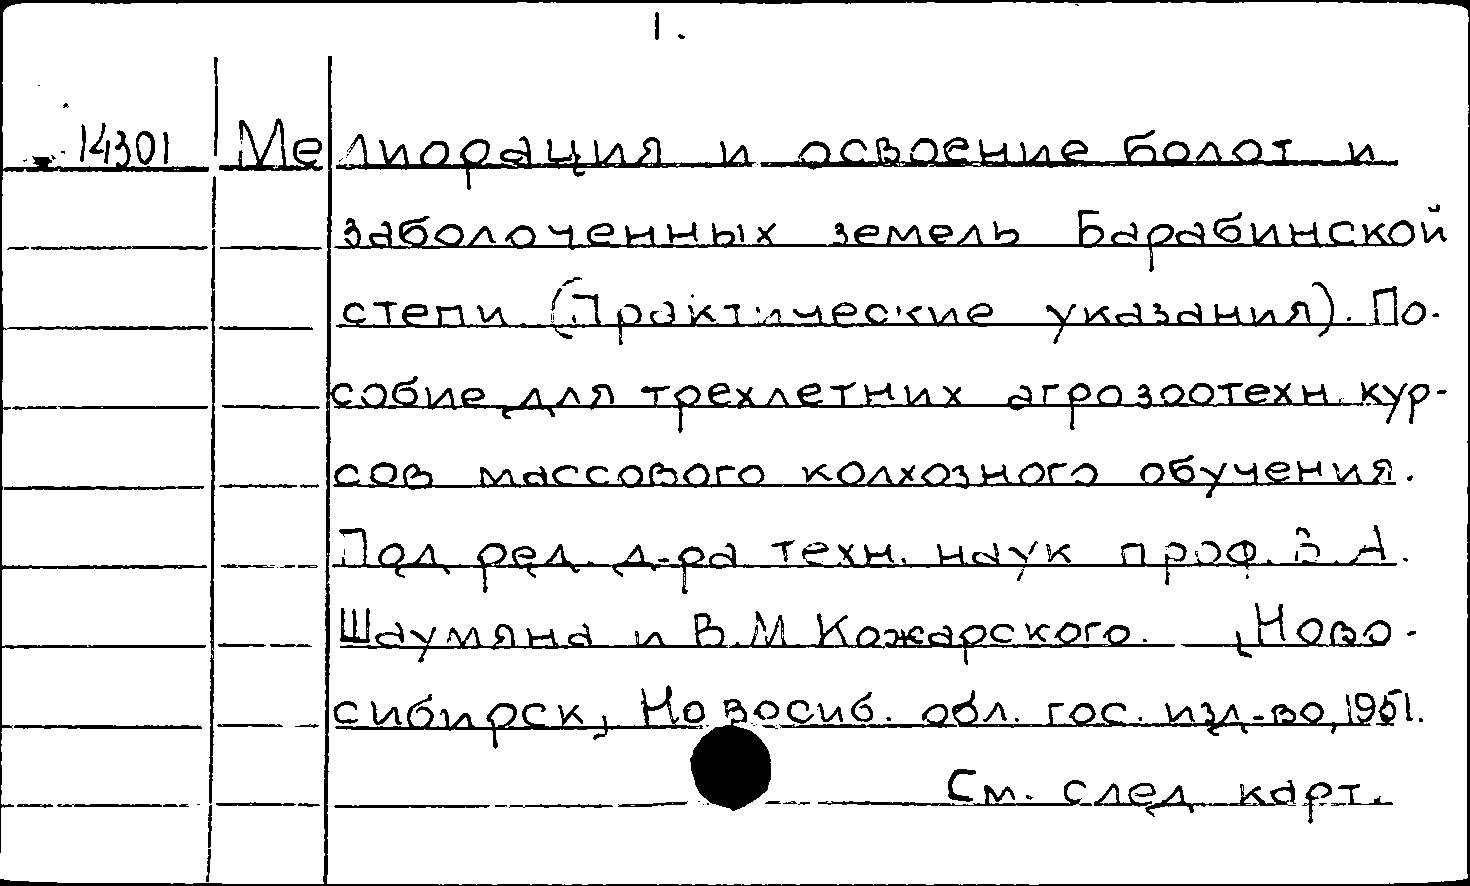 1.
14301 Мелиорация и освоение болот и
заболоченных земель Барабинской
степи (Практические указания). По-
собие для трехлетних агрозоотехн. кур-
сов массового колхозного обучения.
Под ред. д-ра техн. наук проф. В.А.
Шаумяна и В.М Кожарского. [Ново-
сибирск], Новосиб. обл. гос. изд-во, 1951.
См. след карт.